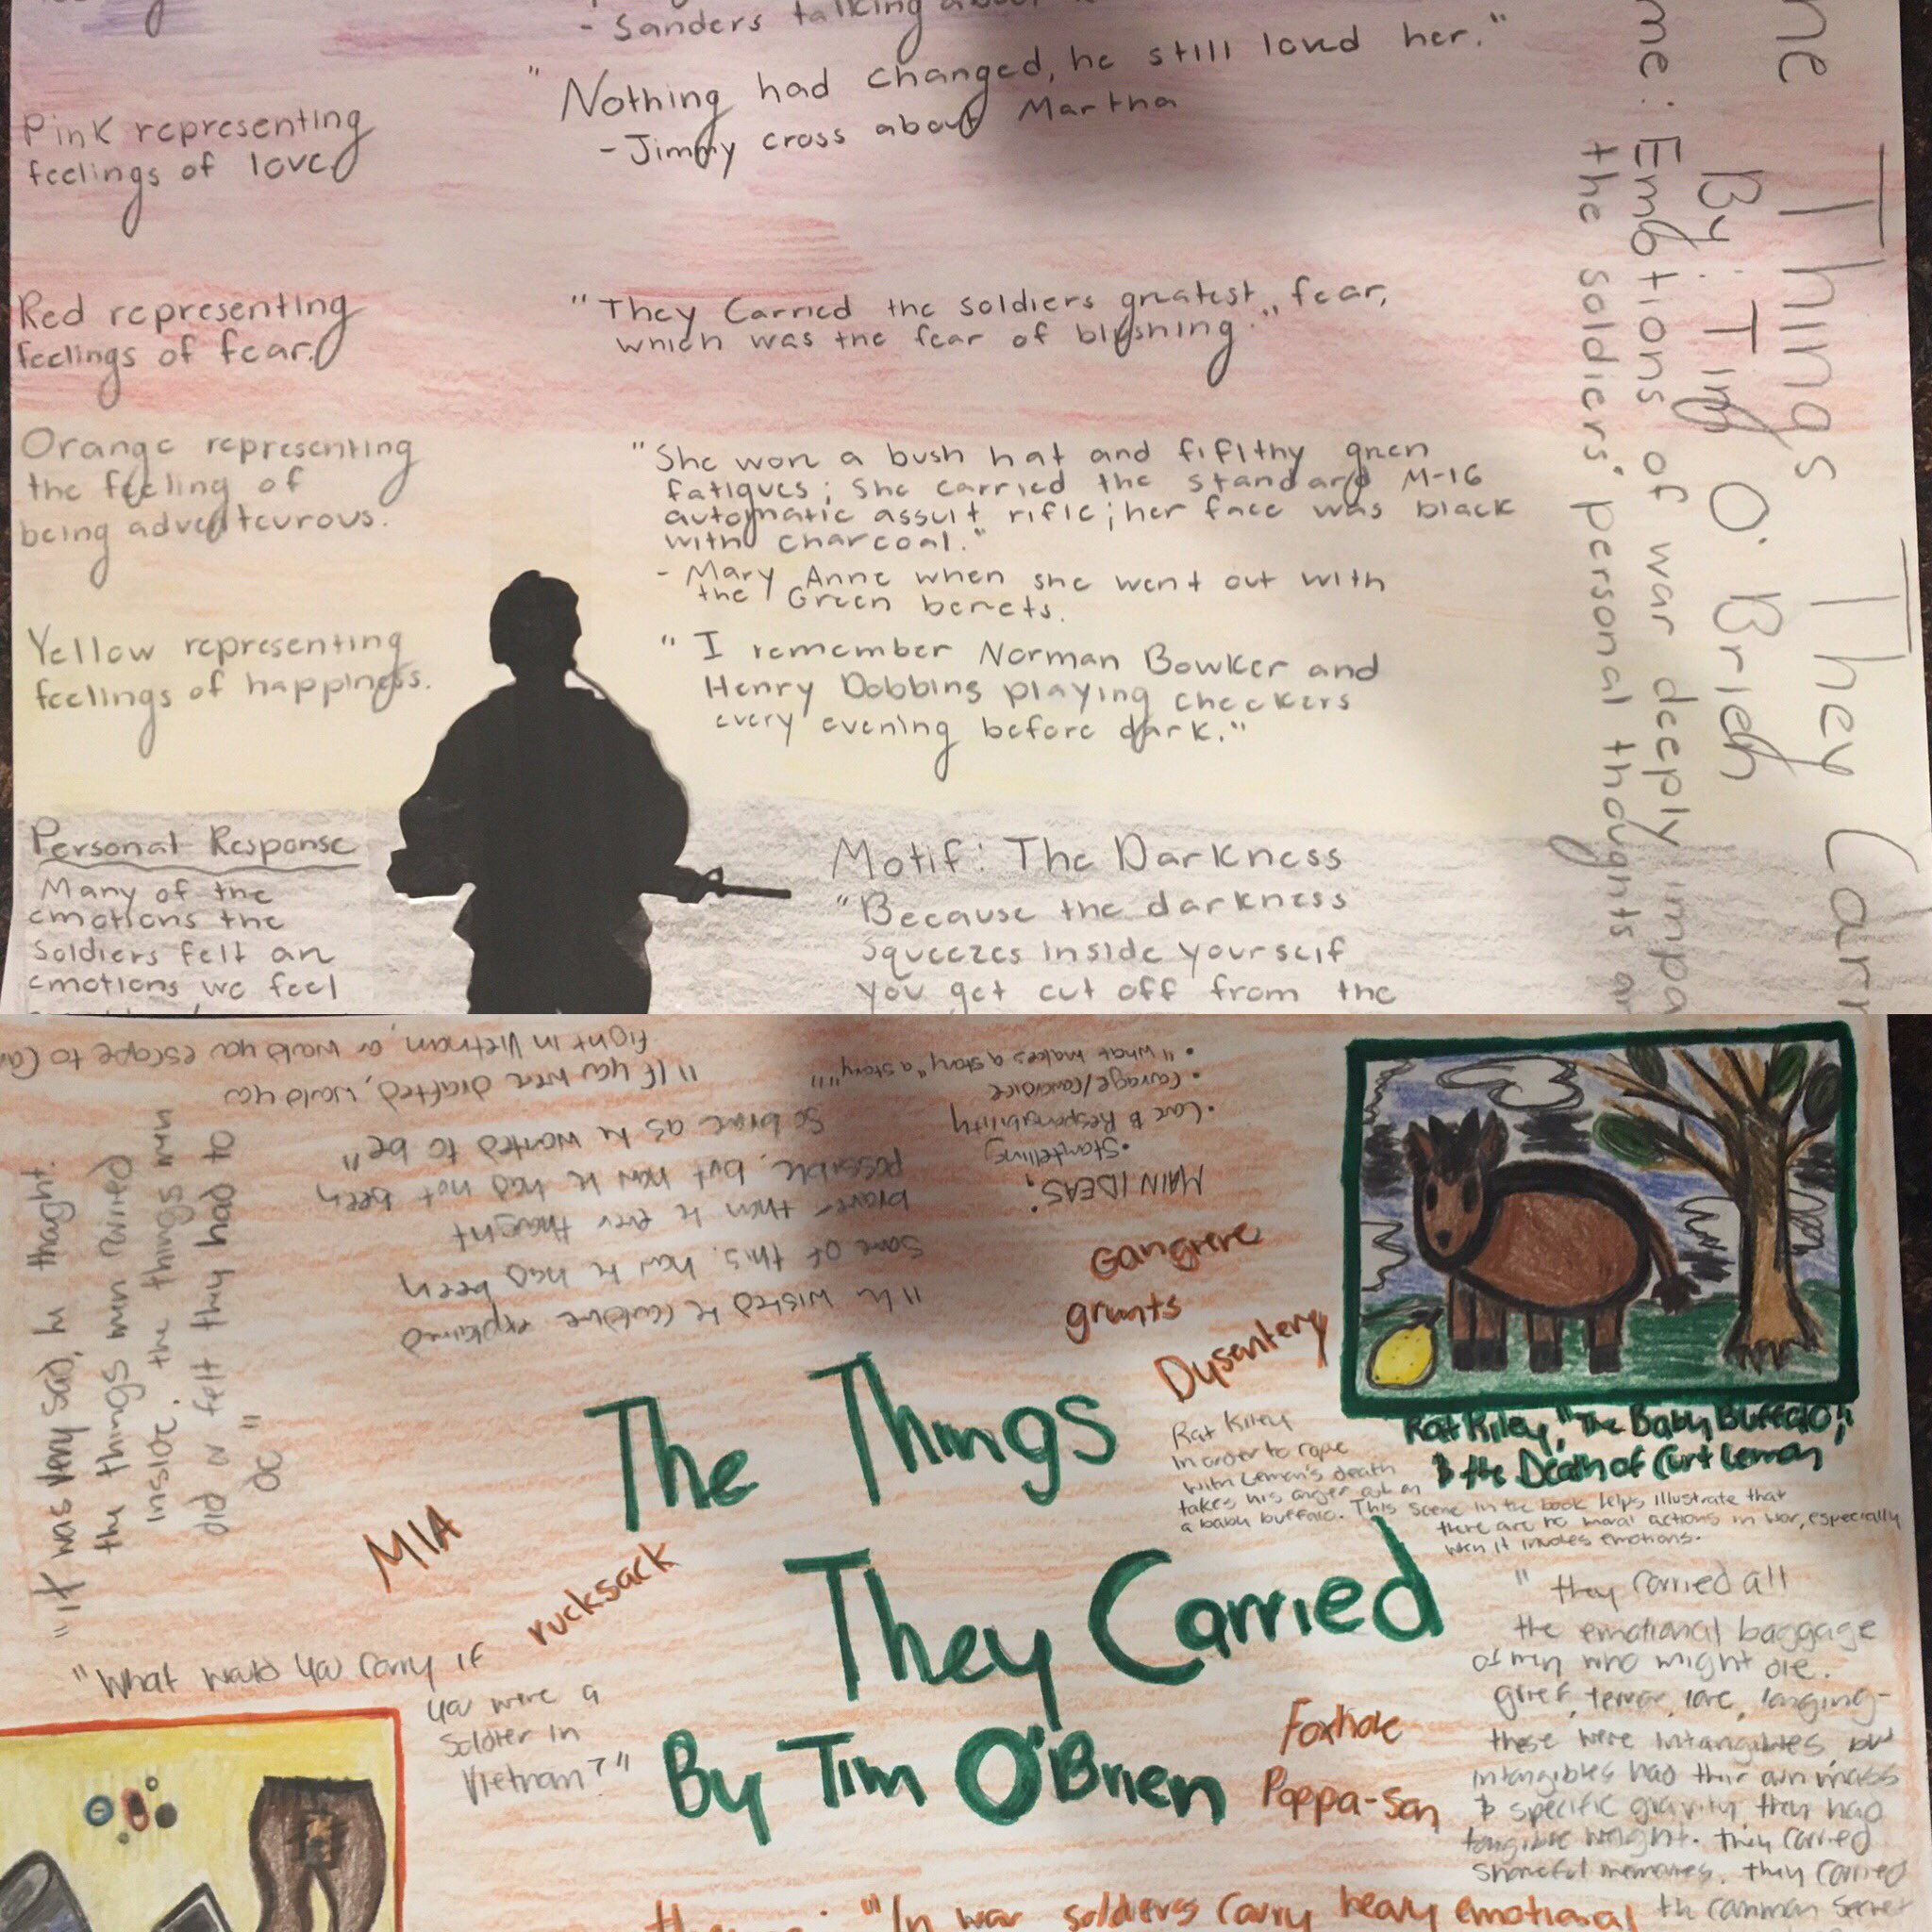 - Sanders talking about
"Nothing had changed, he still loved her."
- Jimmy cross about Martha
Pink representing
feelings of love
Red representing
feelings of fear.
"They Carried the soldiers greatest fear,
which was the fear of blushing."
Orange representing
the feeling of
being adventeurous.
"She wore a bush hat and fifithy green
fatigues; she carried the standard M-16
automatic assult rifle; her face was black
with charcoal."
- Mary Anne when she went out with
the Green berets.
Yellow representing
feelings of happiness.
"I remember Norman Bowker and
Henry Dobbins playing checkers
every evening before dark."
Personal Response
Many of the
emotions the
Soldiers felt are
emotions we feel
Motif: The Darkness
"Because the darkness
squeezes inside yourself
you get cut off from the
The Things They Carr
By: Tim O'Brien
me: Emotions of war deeply impa
the soldiers' personal thoughts an
"If you were drafted, would you
fight in Vietnam, or would you escape to Ca
MAIN IDEAS:
• Storytelling
• Love & Responsibility
• Courage/Cowardice
• "What makes a story, "a story""
"he wished he could've explained
some of this. how he had been
braver than he ever thought
possible, but how he had not been
so brave as he wanted to be"
"it was very sad, he thought.
the things men carried
inside. the things men
did or felt they had to
do"
Gangrene
grunts
Dysentery
MIA
rucksack
The Things
They Carried
By Tim O'Brien
Rat Kiley, "The Baby Buffalo,"
& the Death of Curt Lemon
Rat Kiley
In order to cope
with Lemon's death
takes his anger out on
a baby buffalo. This scene in the book helps illustrate that
there are no moral actions in war, especially
when it involves emotions.
"they carried all
the emotional baggage
of men who might die.
grief, terror, love, longing-
these were intangibles, but
intangibles had their own mass
& specific gravity, they had
tangible weight. they carried
shameful memories. they carried
the common secret
"What would you carry if
you were a
soldier in
Vietnam?"
Foxhole
Poppa-san
"In war soldiers carry heavy emotional